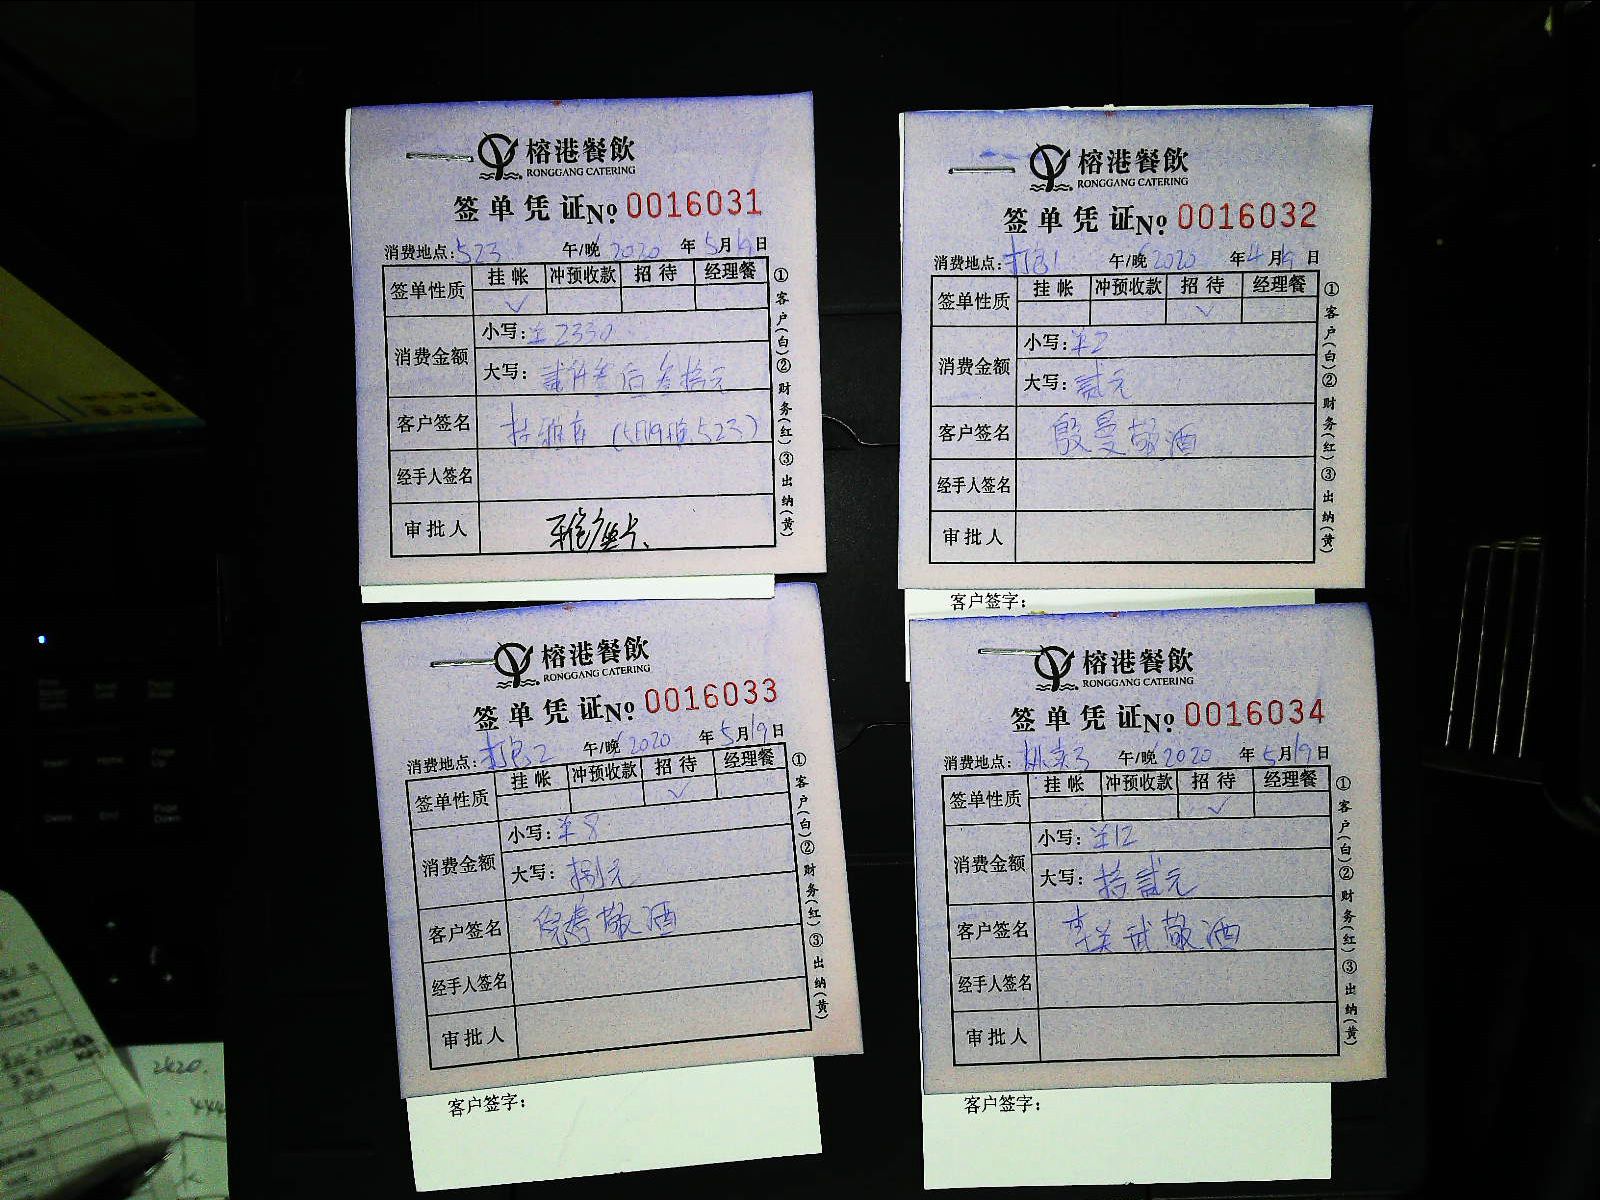 榕港餐飲
RONGGANG CATERING
签单凭证 No. 0016031
消费地点: 523 午/晚 2020 年 5 月 19 日
签单性质 挂帐 冲预收款 招待 经理餐
✓
消费金额 小写: ¥2330
大写: 贰仟叁佰叁拾元
客户签名 (5月19晚523)
经手人签名
审批人
①客户(白)②财务(红)③出纳(黄)
榕港餐飲
RONGGANG CATERING
签单凭证 No. 0016032
消费地点: 打包1 午/晚 2020 年 4 月 19 日
签单性质 挂帐 冲预收款 招待 经理餐
✓
消费金额 小写: ¥2
大写: 贰元
客户签名 殷曼敬酒
经手人签名
审批人
①客户(白)②财务(红)③出纳(黄)
客户签字:
榕港餐飲
RONGGANG CATERING
签单凭证 No. 0016033
消费地点: 打包2 午/晚 2020 年 5 月 19 日
签单性质 挂帐 冲预收款 招待 经理餐
✓
消费金额 小写: ¥8
大写: 捌元
客户签名 敬酒
经手人签名
审批人
①客户(白)②财务(红)③出纳(黄)
客户签字:
榕港餐飲
RONGGANG CATERING
签单凭证 No. 0016034
消费地点: 外卖3 午/晚 2020 年 5 月 19 日
签单性质 挂帐 冲预收款 招待 经理餐
✓
消费金额 小写: ¥12
大写: 拾贰元
客户签名 李美武敬酒
经手人签名
审批人
①客户(白)②财务(红)③出纳(黄)
客户签字: